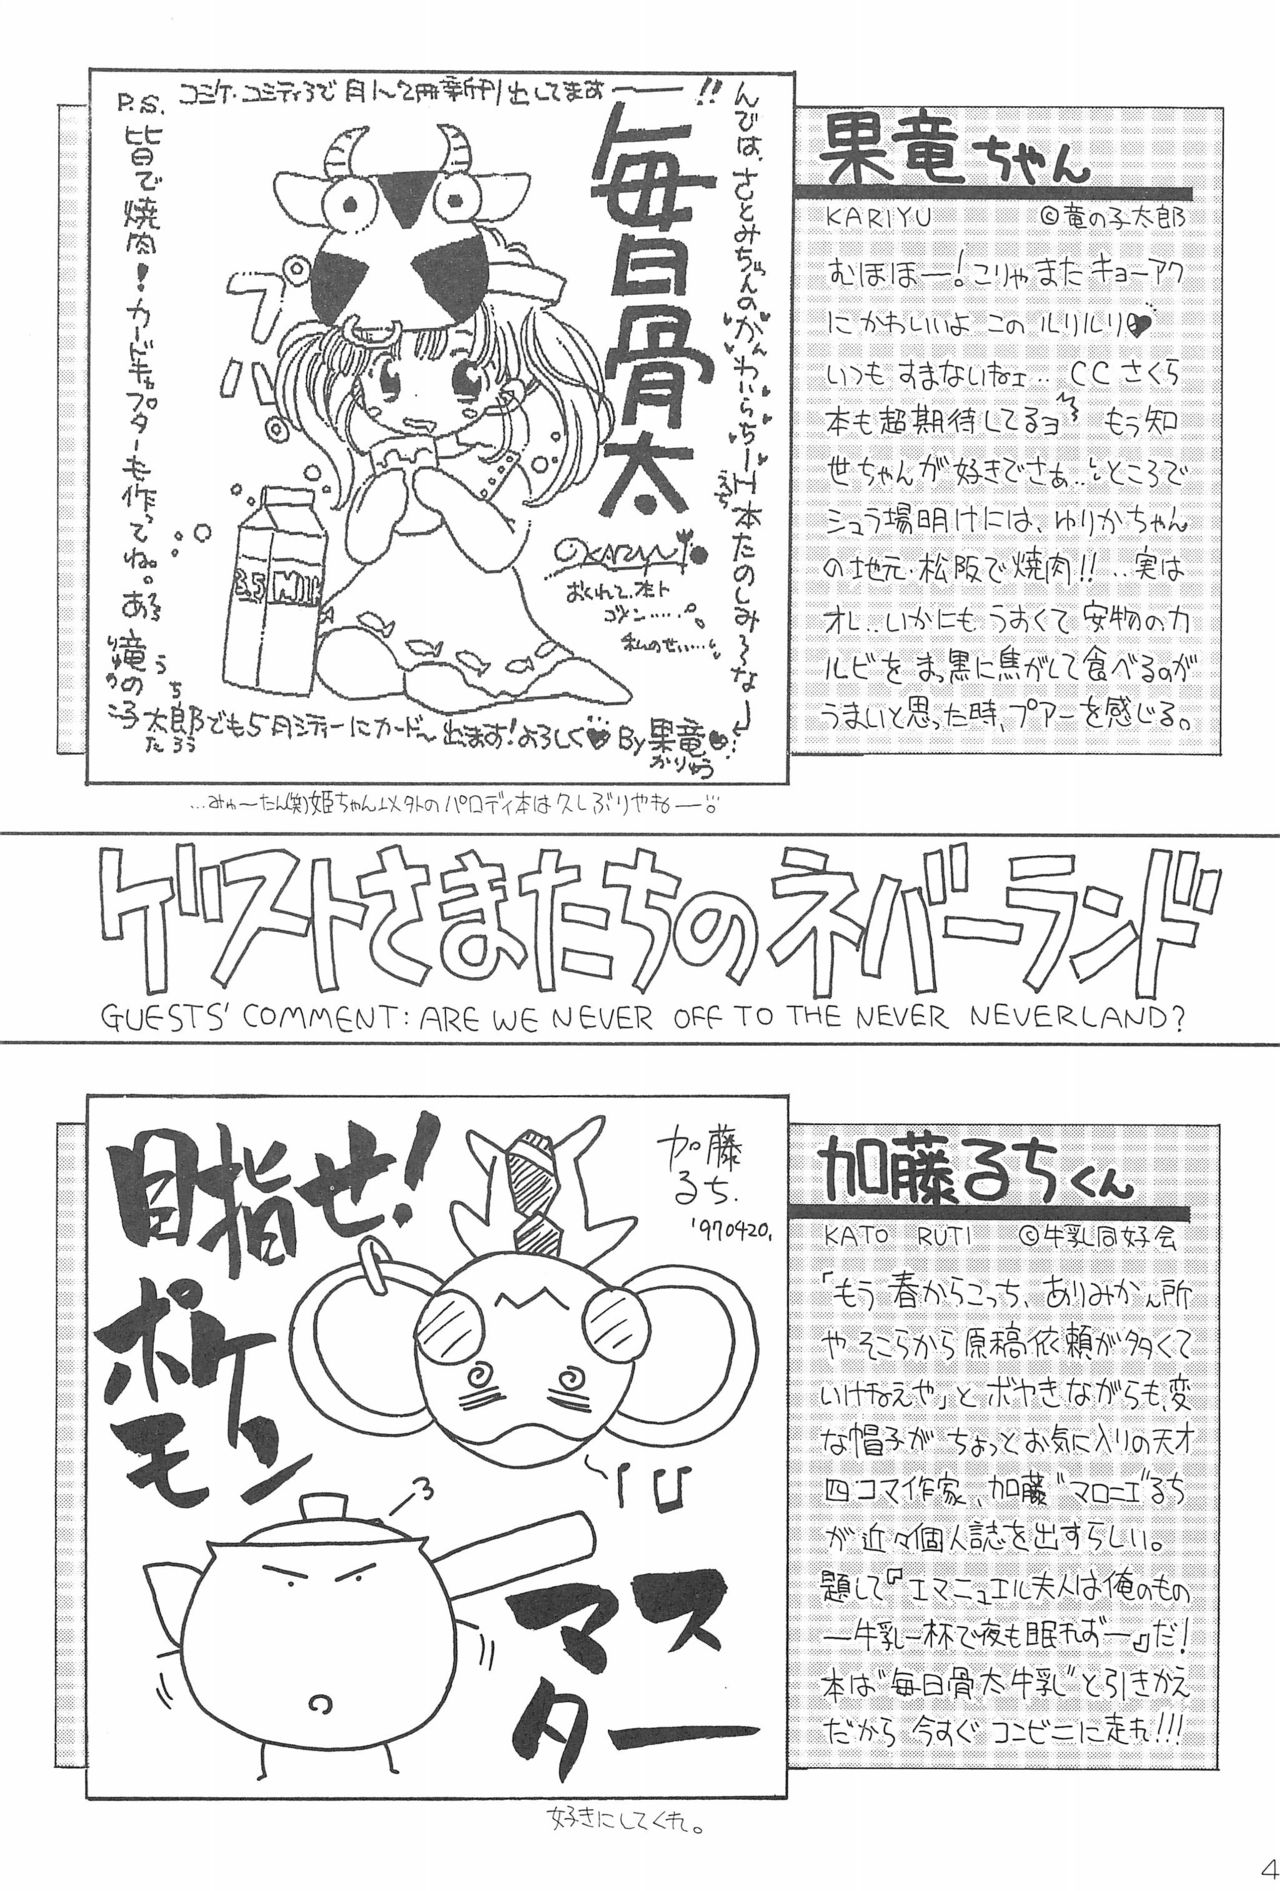 コミケ・コミティアで月1〜2冊新刊出してます――!!
毎日骨太
P.S.
皆で焼肉!カードキャプターも作ってね。
プ
ハ
3.5 MILK
おくれて、ホント
ゴメン……。
私のせい…
太郎でも5月シティーにカード〜出ます!よろしく♥By果竜♥
たろう
かりゅう
果竜ちゃん
KARIYU ©竜の子太郎
むほほー!こりゃまたキョーアク
にかわいいよ このルリルリ♥
いつもすまないねェ… CCさくら
本も超期待してるヨ もう知
世ちゃんが好きでさぁ..ところで
シュラ場明けには、ゆりかちゃん
の地元・松阪で焼肉!! ‥実は
オレ‥いかにもうすくて安物のカ
ルビをまっ黒に焦がして食べるのが
うまいと思った時、プアーを感じる。
ゲストさまたちのネバーランド
GUESTS' COMMENT: ARE WE NEVER OFF TO THE NEVER NEVERLAND?
目指せ!
ポケモン
マスター
加藤
るち.
'970420.
好きにしてくれ。
加藤るちくん
KATO RUTI ©牛乳同好会
「もう春からこっち、ありみかん所
やそこらから原稿依頼が多くて
いけねえや」とボヤきながらも、変
な帽子がちょっとお気に入りの天才
四コマ作家、加藤"マロニエ"るち
が近々個人誌を出すらしい。
題して『エマニュエル夫人は俺のもの
―牛乳一杯で夜も眠れず―』だ!
本は"毎日骨太牛乳"と引きかえ
だから今すぐコンビニに走れ!!!
4